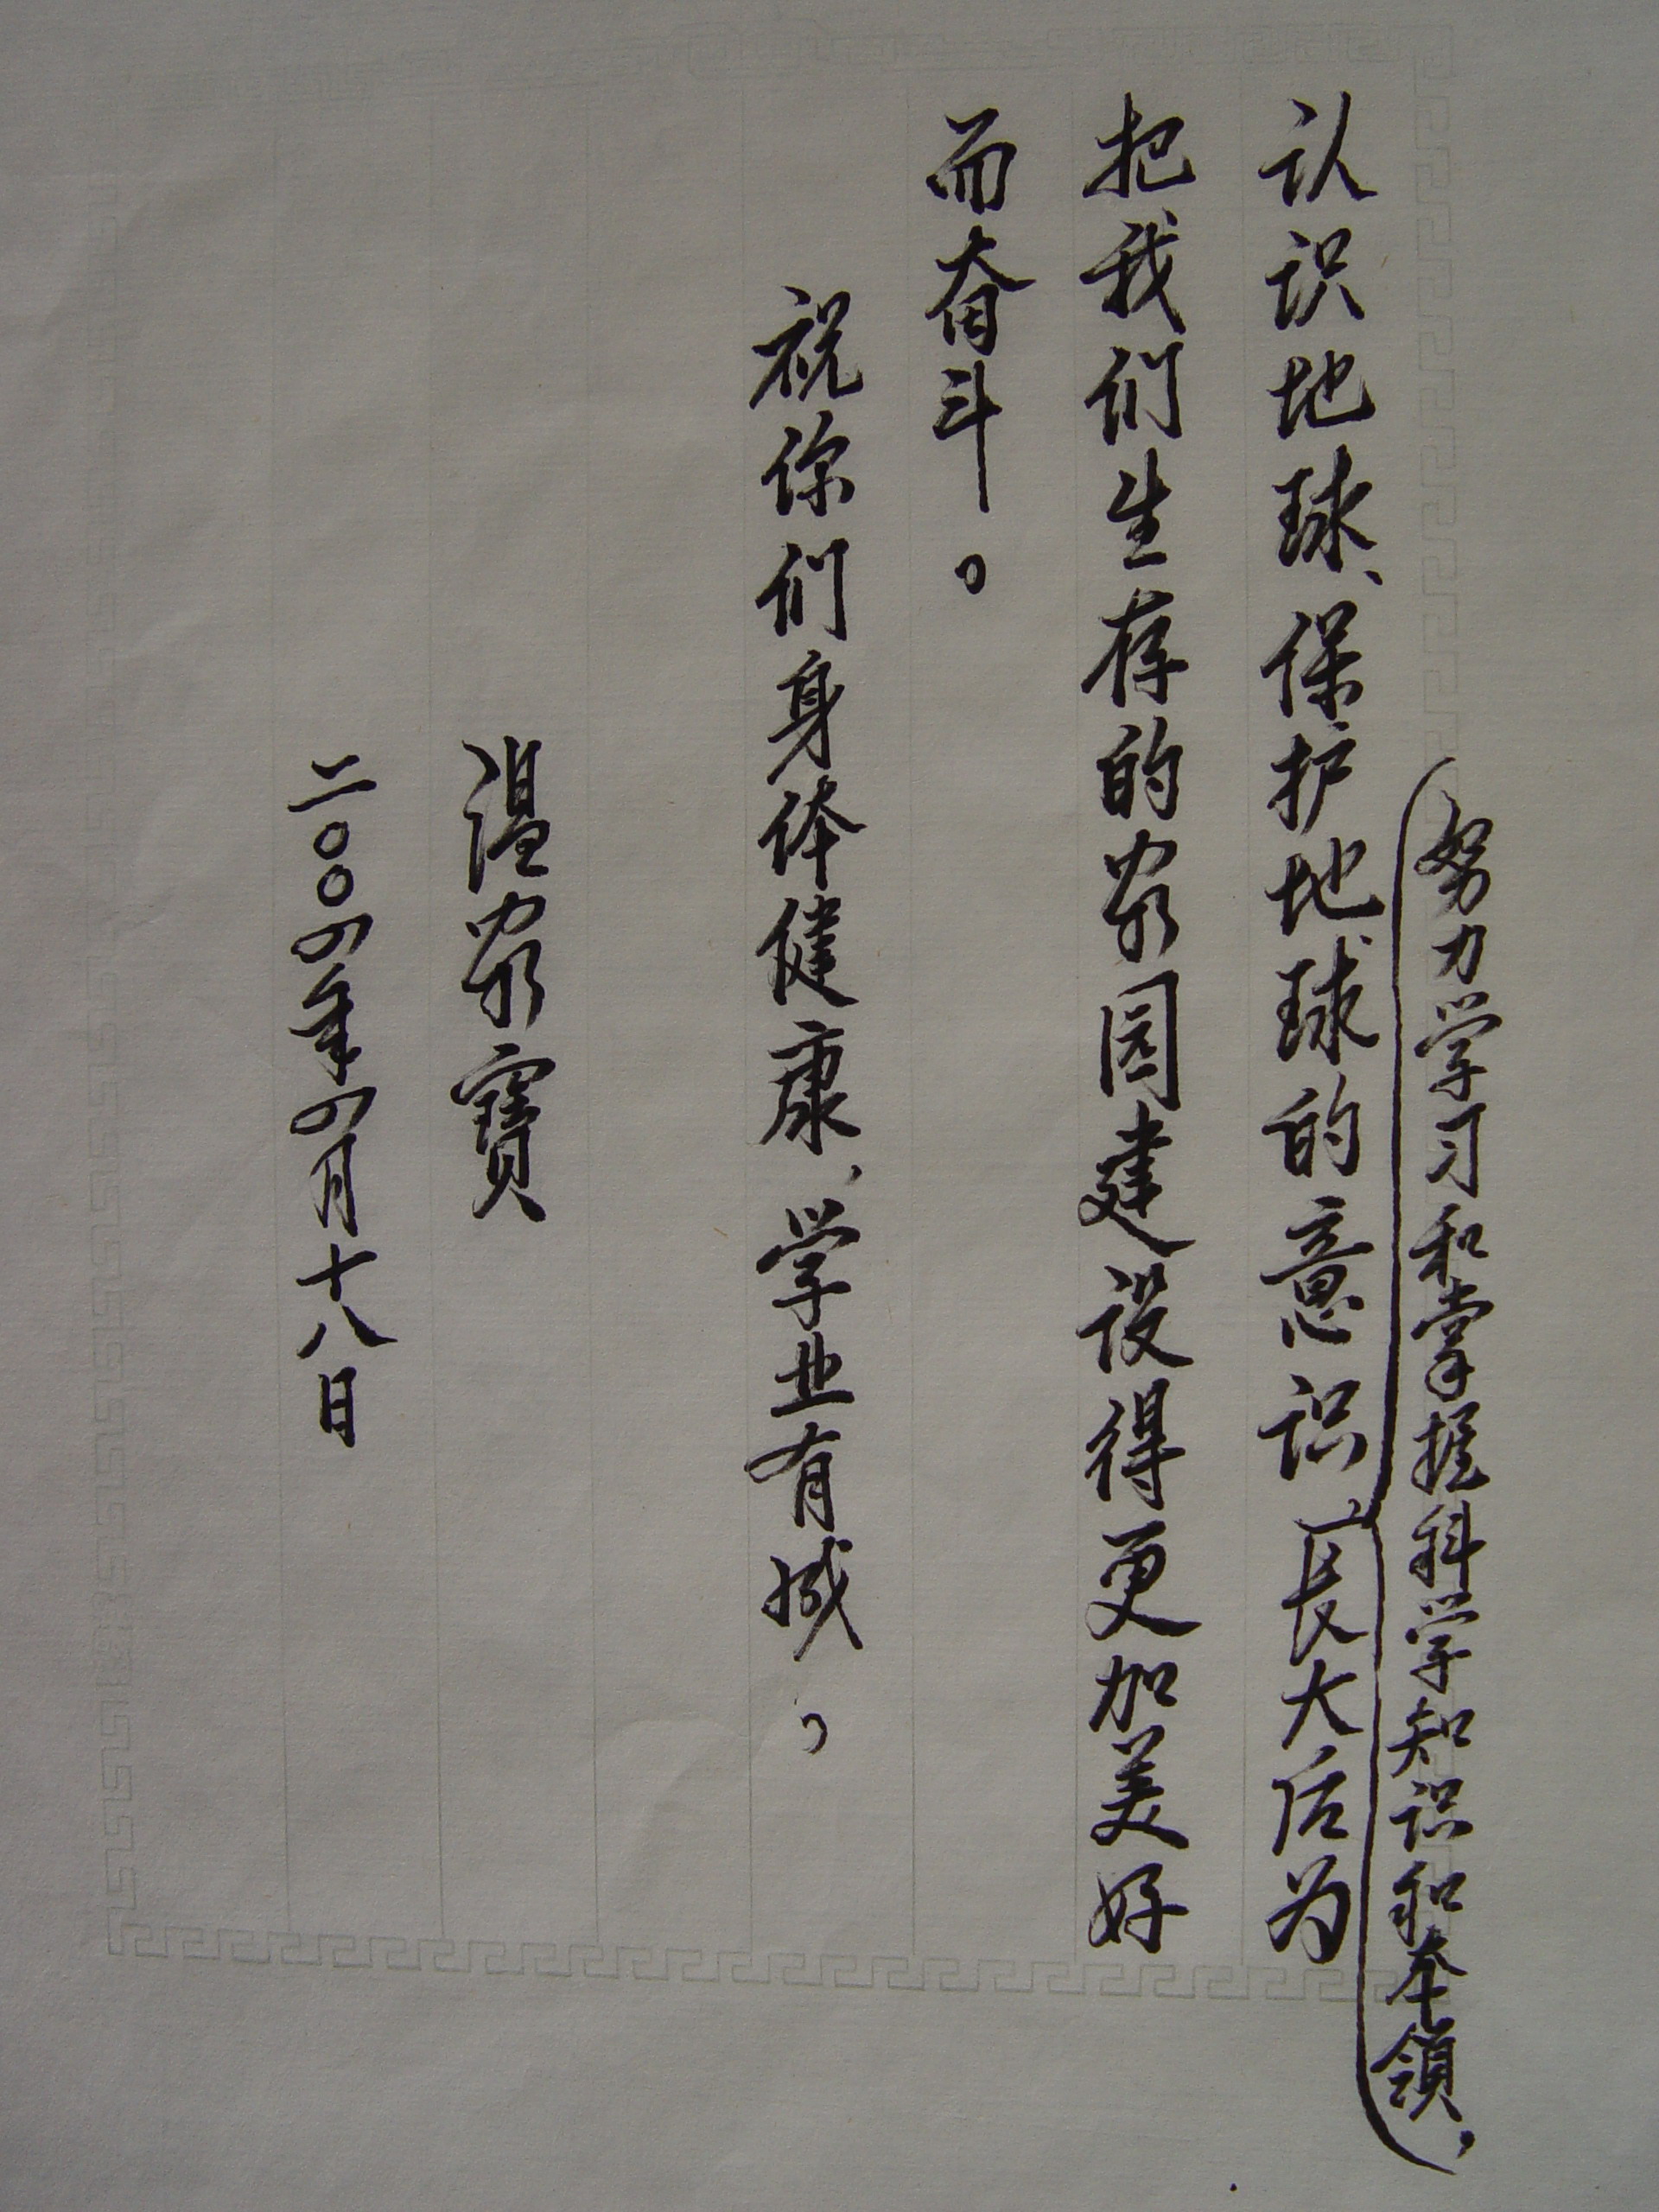 努力学习和掌握科学知识和本领，
认识地球、保护地球的意识，長大后为
把我们生存的家园建设得更加美好
而奋斗。
祝你们身体健康，学业有成。
温家寶
二〇〇四年四月十八日